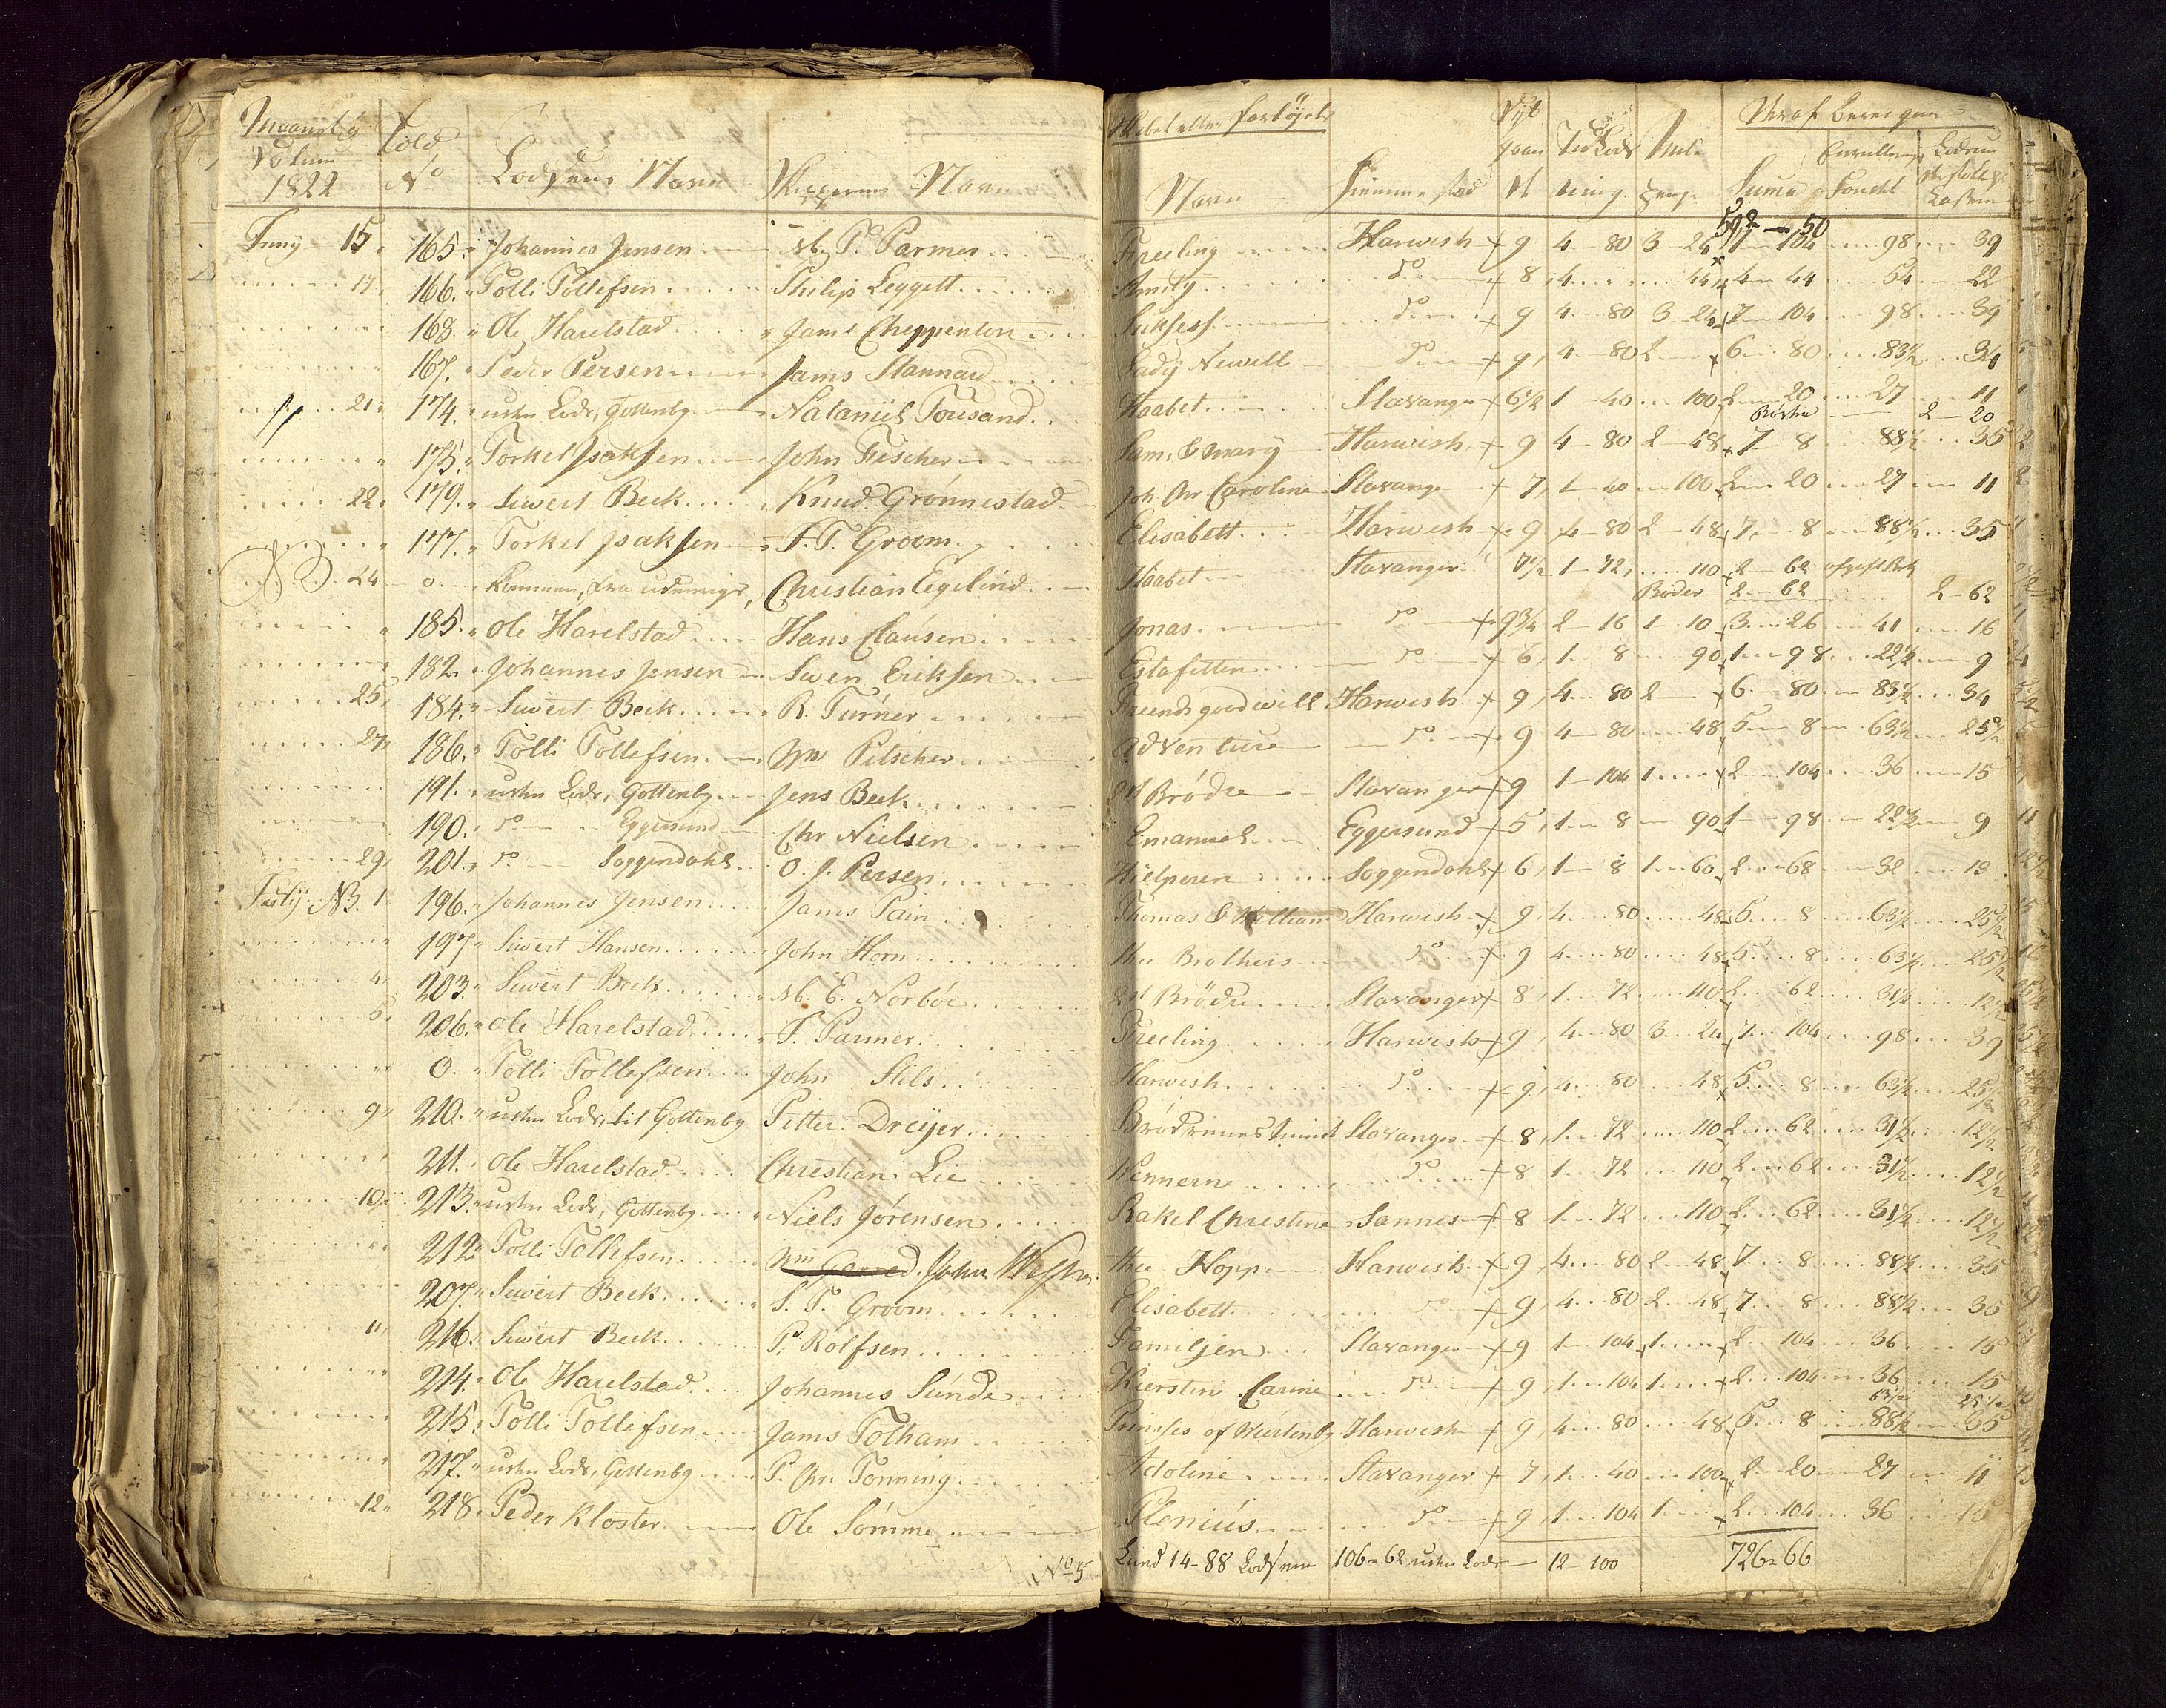 1822 No Navn Navn Navn Hiemmested Suma
592 - 50
Juny 15 165. Johannes Jensen M. P. Parmer Freeling Harwish 9 4 80 3 24 7 104 98 39
17 166. Tolli Tollefsen Philip Leggett Amity do 8 4 44 4 44 54 22
168. Ole Harelstad Jams Cheppenton Suksess do 9 4 80 3 24 7 104 98 39
167. Peder Persen Jams Stannard Lady Newill do 9 4 80 2 6 80 83½ 34
21 174. uden Lods, Gottenbg Nataniel Tousand Haabet Stavanger 6½ 1 40 100 2 20 27 11
2 - 20
175. Torkel Jsaksen John Fischer Sam. & Mary Harwish 9 4 80 2 48 7 8 88½ 35
22 179. Siwert Beck Knud Grönnestad Joh. Chr Caroline Stavanger 7 1 40 100 2 20 27 11
177. Torkel Jsaksen S. T. Groom Elisabett Harwish 9 4 80 2 48 7 8 88½ 35
24 0 Kommen fra Christian Egelind Haabet Stavanger 7½ 1 72 110 2 62
Bøder 2 - 62 2 - 62
185. Ole Harelstad Hans Clausen Jonas do 9¾ 2 16 1 10 3 26 41 16
182. Johannes Jensen Swen Eriksen Estafetten do 6 1 8 90 1 98 22½ 9
25 184. Siwert Beck R. Turner Freends goodwill Harwish 9 4 80 2 6 80 83½ 34
27 186. Tolli Tollefsen Wm Pitscher Adventure do 9 4 80 48 5 8 63½ 25½
191. uden Lods, Gottenbg Jens Beck Brödre Stavanger 9 1 104 1 2 104 36 15
190. do Eggersund Chr Nielsen Emanuel Eggersund 5 1 8 90 1 98 22½ 9
29 201. do Soggendahl O. J. Persen Hielperen Soggendahl 6 1 8 1 60 2 68 32 13
July NB. 1 196. Johannes Jensen Jams Pain Thomas & William Harwish 9 4 80 48 5 8 63½ 25½
197 Siwert Hansen John Horn the Brothers do 9 4 80 48 5 8 63½ 25½
4 203. Siwert Beck M. E. Norböe Brödre Stavanger 8 1 72 110 2 62 31½ 12½
5 206. Ole Harelstad P. Parmer Freeling Harwish 9 4 80 3 24 7 104 98 39
0. Tolli Tollefsen John Stils Harwish do 9 4 80 48 5 8 63½ 25½
9 210. uden Lods, til Gottenbg Petter Dreyer Brödrenes Stavanger 8 1 72 110 2 62 31½ 12½
211. Ole Harelstad Christian Lie Wennerne do 8 1 72 110 2 62 31½ 12½
10 213. uden Lods, Gottenbg Niels Jörensen Rakel Christine Sannes 8 1 72 110 2 62 31½ 12½
212 Tolli Tollefsen Wm Garred John the Hopp Harwish 9 4 80 2 48 7 8 88½ 35
207. Siwert Beck S. T. Groom Elisabett do 9 4 80 2 48 7 8 88½ 35
11 216. Siwert Beck P. Rolfsen Familjen Stavanger 9 1 104 1 2 104 36 15
214. Ole Harelstad Johannes Sunde Kierstin Carine do 9 1 104 1 2 104 36 15
63½ 25½
215. Tolli Tollefsen Jams Tolham Prinses of Wirtenbg Harwish 9 4 80 48 5 8 88½ 35
217. uden Lods, Gottenbg P. Chr Tonning Adoline Stavanger 7 1 40 100 2 20 27 11
12 218. Peder Kloster Ole Sömme Plenius do 9 1 104 1 2 104 36 15
No 5 Lund 14 - 88 Lodsene 106 - 62 uden Lods 12 - 100 726 - 66